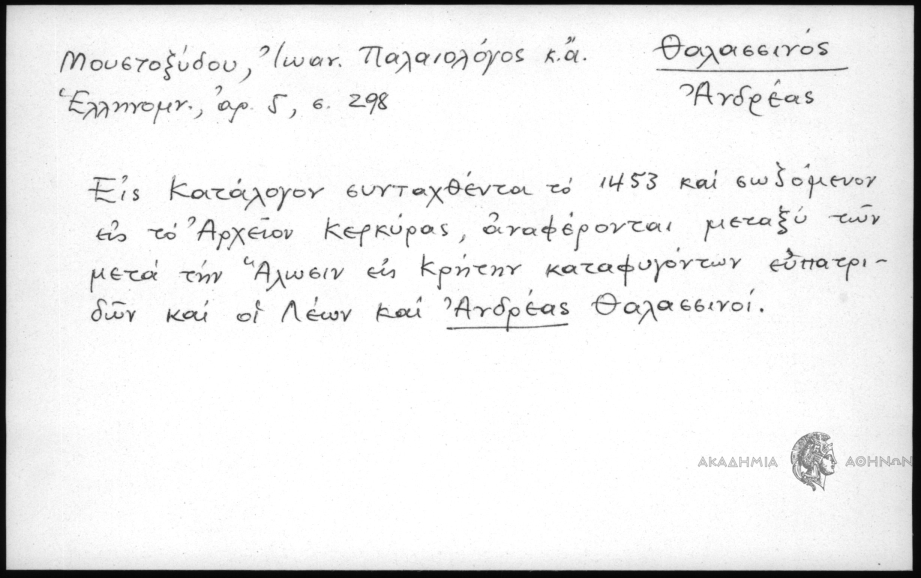 Μουστοξύδου, Ἰωαν. Παλαιολόγος κ.ἄ.
Ἑλληνομν., ἀρ. 5, σ. 298
Θαλασσινός
Ἀνδρέας
Εἰς Κατάλογον συνταχθέντα τό 1453 καί σωζόμενον
εἰς τό Ἀρχεῖον Κερκύρας, ἀναφέρονται μεταξύ τῶν
μετά τήν Ἅλωσιν εἰς Κρήτην καταφυγόντων εὐπατρι-
δῶν καί οἱ Λέων καί Ἀνδρέας Θαλασσινοί.
ΑΚΑΔΗΜΙΑ ΑΘΗΝΩΝ